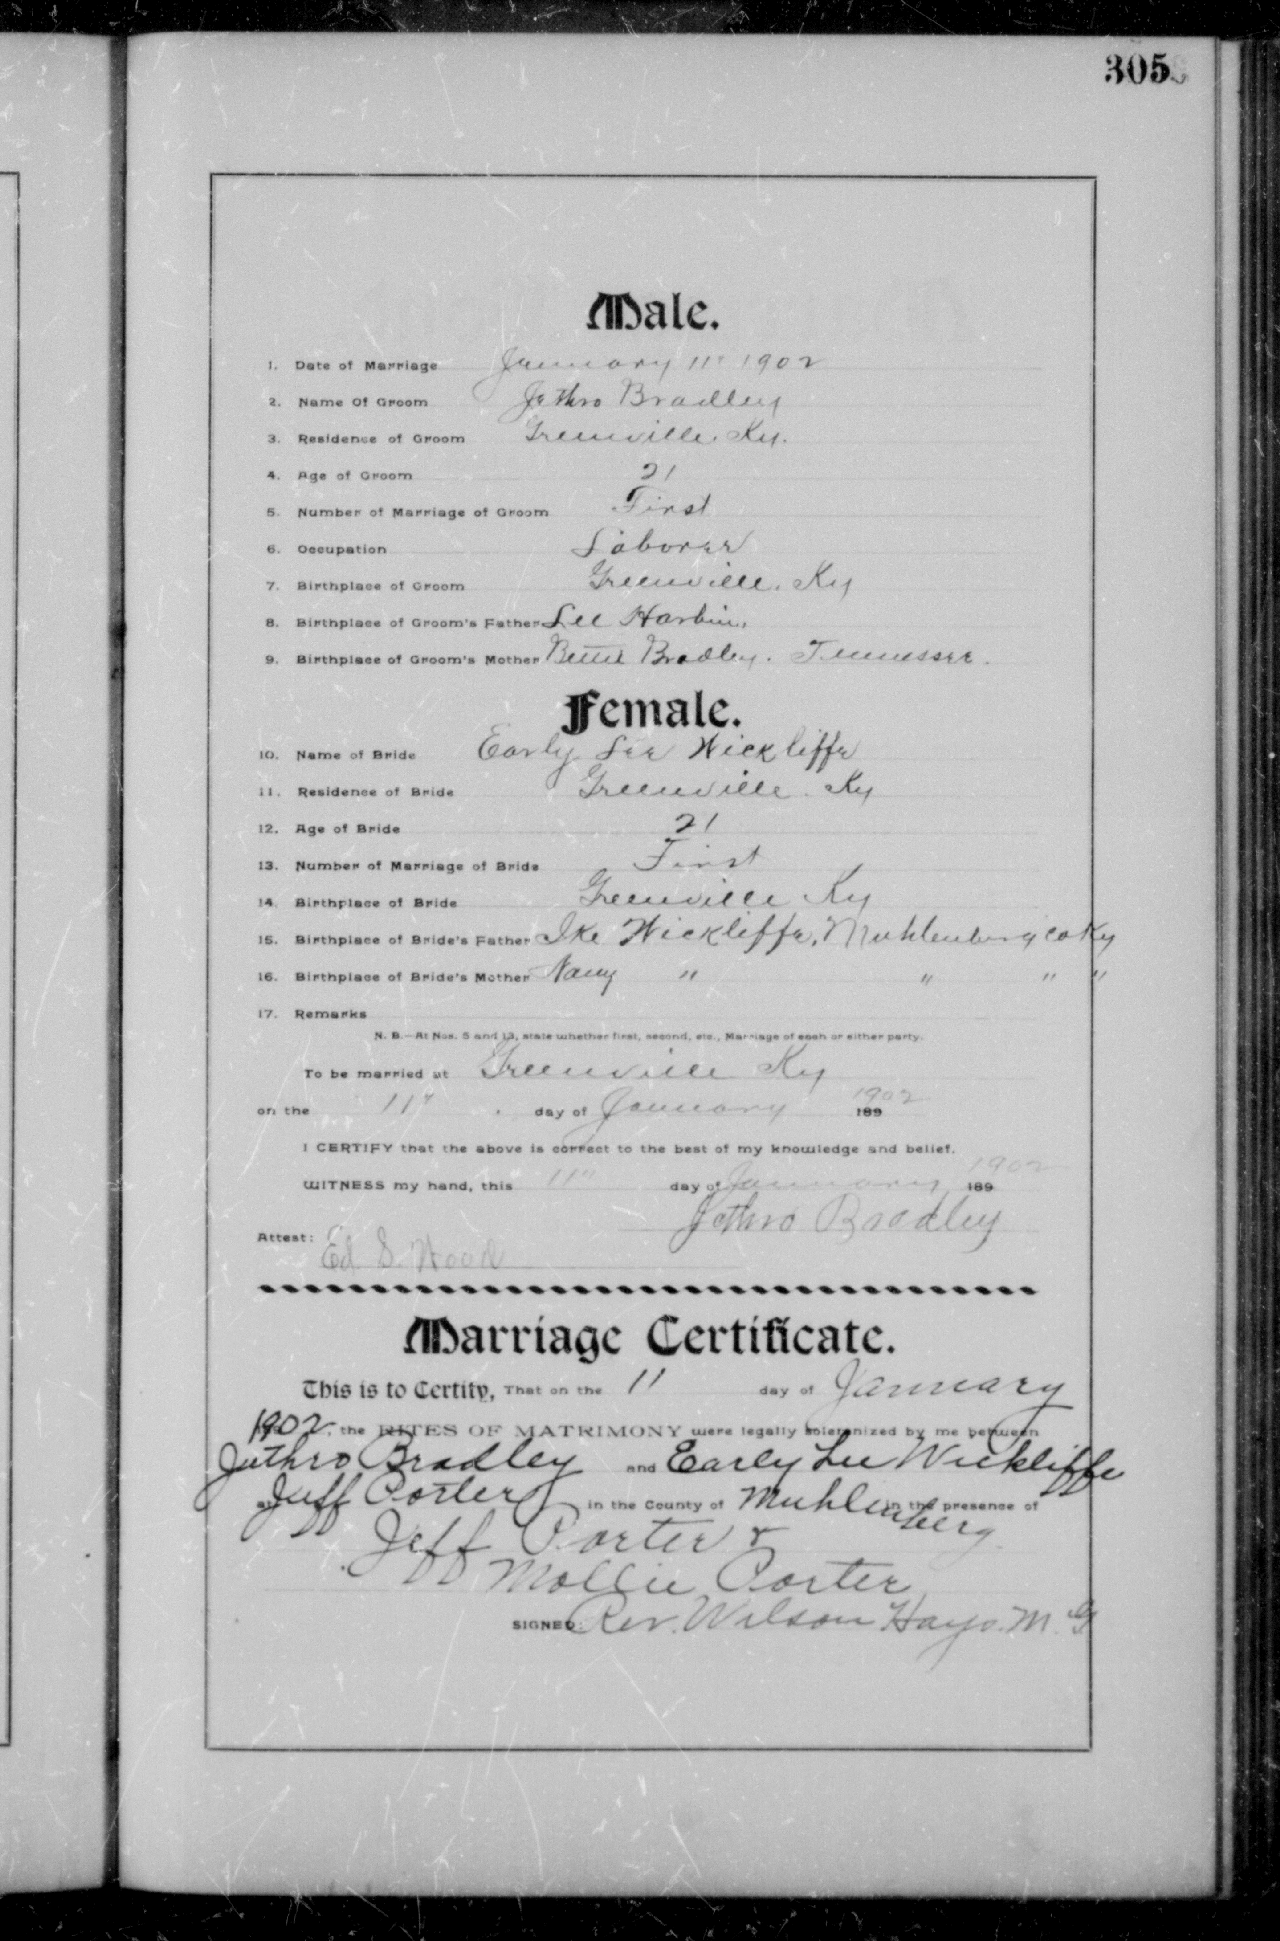 305
Male.
1. Date of Marriage January 11" 1902
2. Name Of Groom Jethro Bradley
3. Residence of Groom Greenville. Ky.
4. Age of Groom 21
5. Number of Marriage of Groom First
6. Occupation Laborer
7. Birthplace of Groom Greenville. Ky
8. Birthplace of Groom's Father Lee Harbin.
9. Birthplace of Groom's Mother Bettie Bradley. Tennessee.
Female.
10. Name of Bride Early Lee Wickliffe
11. Residence of Bride Greenville. Ky
12. Age of Bride 21
13. Number of Marriage of Bride First
14. Birthplace of Bride Greenville Ky
15. Birthplace of Bride's Father Ike Wickliffe, Muhlenberg co Ky
16. Birthplace of Bride's Mother Nancy " " " "
17. Remarks
N. B.—At Nos. 5 and 13, state whether first, second, etc., Marriage of each or either party.
To be married at Greenville Ky
on the 11" day of January 1902 189
I CERTIFY that the above is correct to the best of my knowledge and belief.
WITNESS my hand, this 11" day of January 1902 189
Jethro Bradley
Attest: Ed S. Wood
Marriage Certificate.
This is to Certify, That on the 11 day of January
1902, the RITES OF MATRIMONY were legally solemnized by me between
Jethro Bradley and Early Lee Wickliffe
at Jeff Porter in the County of Muhlenberg in the presence of
Jeff Porter &
Mollie Porter
SIGNED: Rev. Wilson Hays. M. G